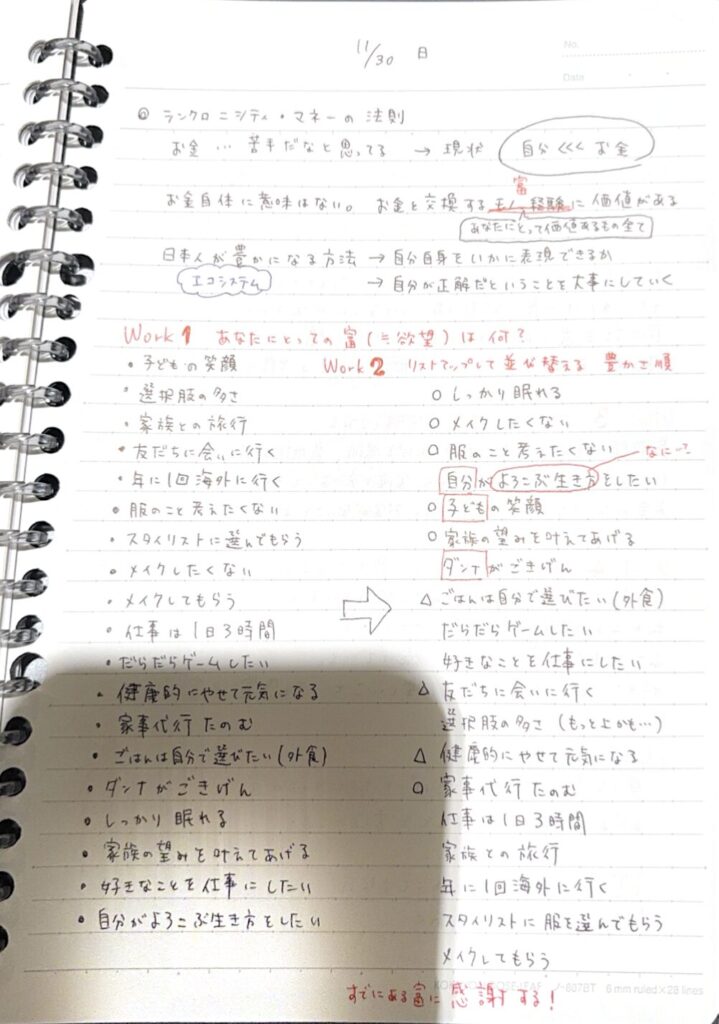 11/30 日
No.
Date
◎ シンクロニシティ・マネーの法則
お金 … 苦手だなと思ってる → 現状 自分 <<< お金
富
お金自体に意味はない。 お金と交換するモノ 経験に価値がある
あなたにとって価値あるもの全て
日本人が豊かになる方法 → 自分自身をいかに表現できるか
エコシステム → 自分が正解だということを大事にしていく
Work1 あなたにとっての富(≒欲望)は何?
・子どもの笑顔
・選択肢の多さ
・家族との旅行
・友だちに会いに行く
・年に1回海外に行く
・服のこと考えたくない
・スタイリストに選んでもらう
・メイクしたくない
・メイクしてもらう
・仕事は1日3時間
・だらだらゲームしたい
・健康的にやせて元気になる
・家事代行たのむ
・ごはんは自分で選びたい(外食)
・ダンナがごきげん
・しっかり眠れる
・家族の望みを叶えてあげる
・好きなことを仕事にしたい
・自分がよろこぶ生き方をしたい
Work2 リストアップして並び替える 豊かさ順
○ しっかり眠れる
○ メイクしたくない
○ 服のこと考えたくない
なに〜?
自分がよろこぶ生き方をしたい
○ 子どもの笑顔
○ 家族の望みを叶えてあげる
ダンナがごきげん
△ ごはんは自分で選びたい(外食)
だらだらゲームしたい
好きなことを仕事にしたい
△ 友だちに会いに行く
選択肢の多さ (もっと上かも…)
△ 健康的にやせて元気になる
○ 家事代行たのむ
仕事は1日3時間
家族との旅行
年に1回海外に行く
スタイリストに服を選んでもらう
メイクしてもらう
すでにある富に感謝する!
6 mm ruled×28 lines